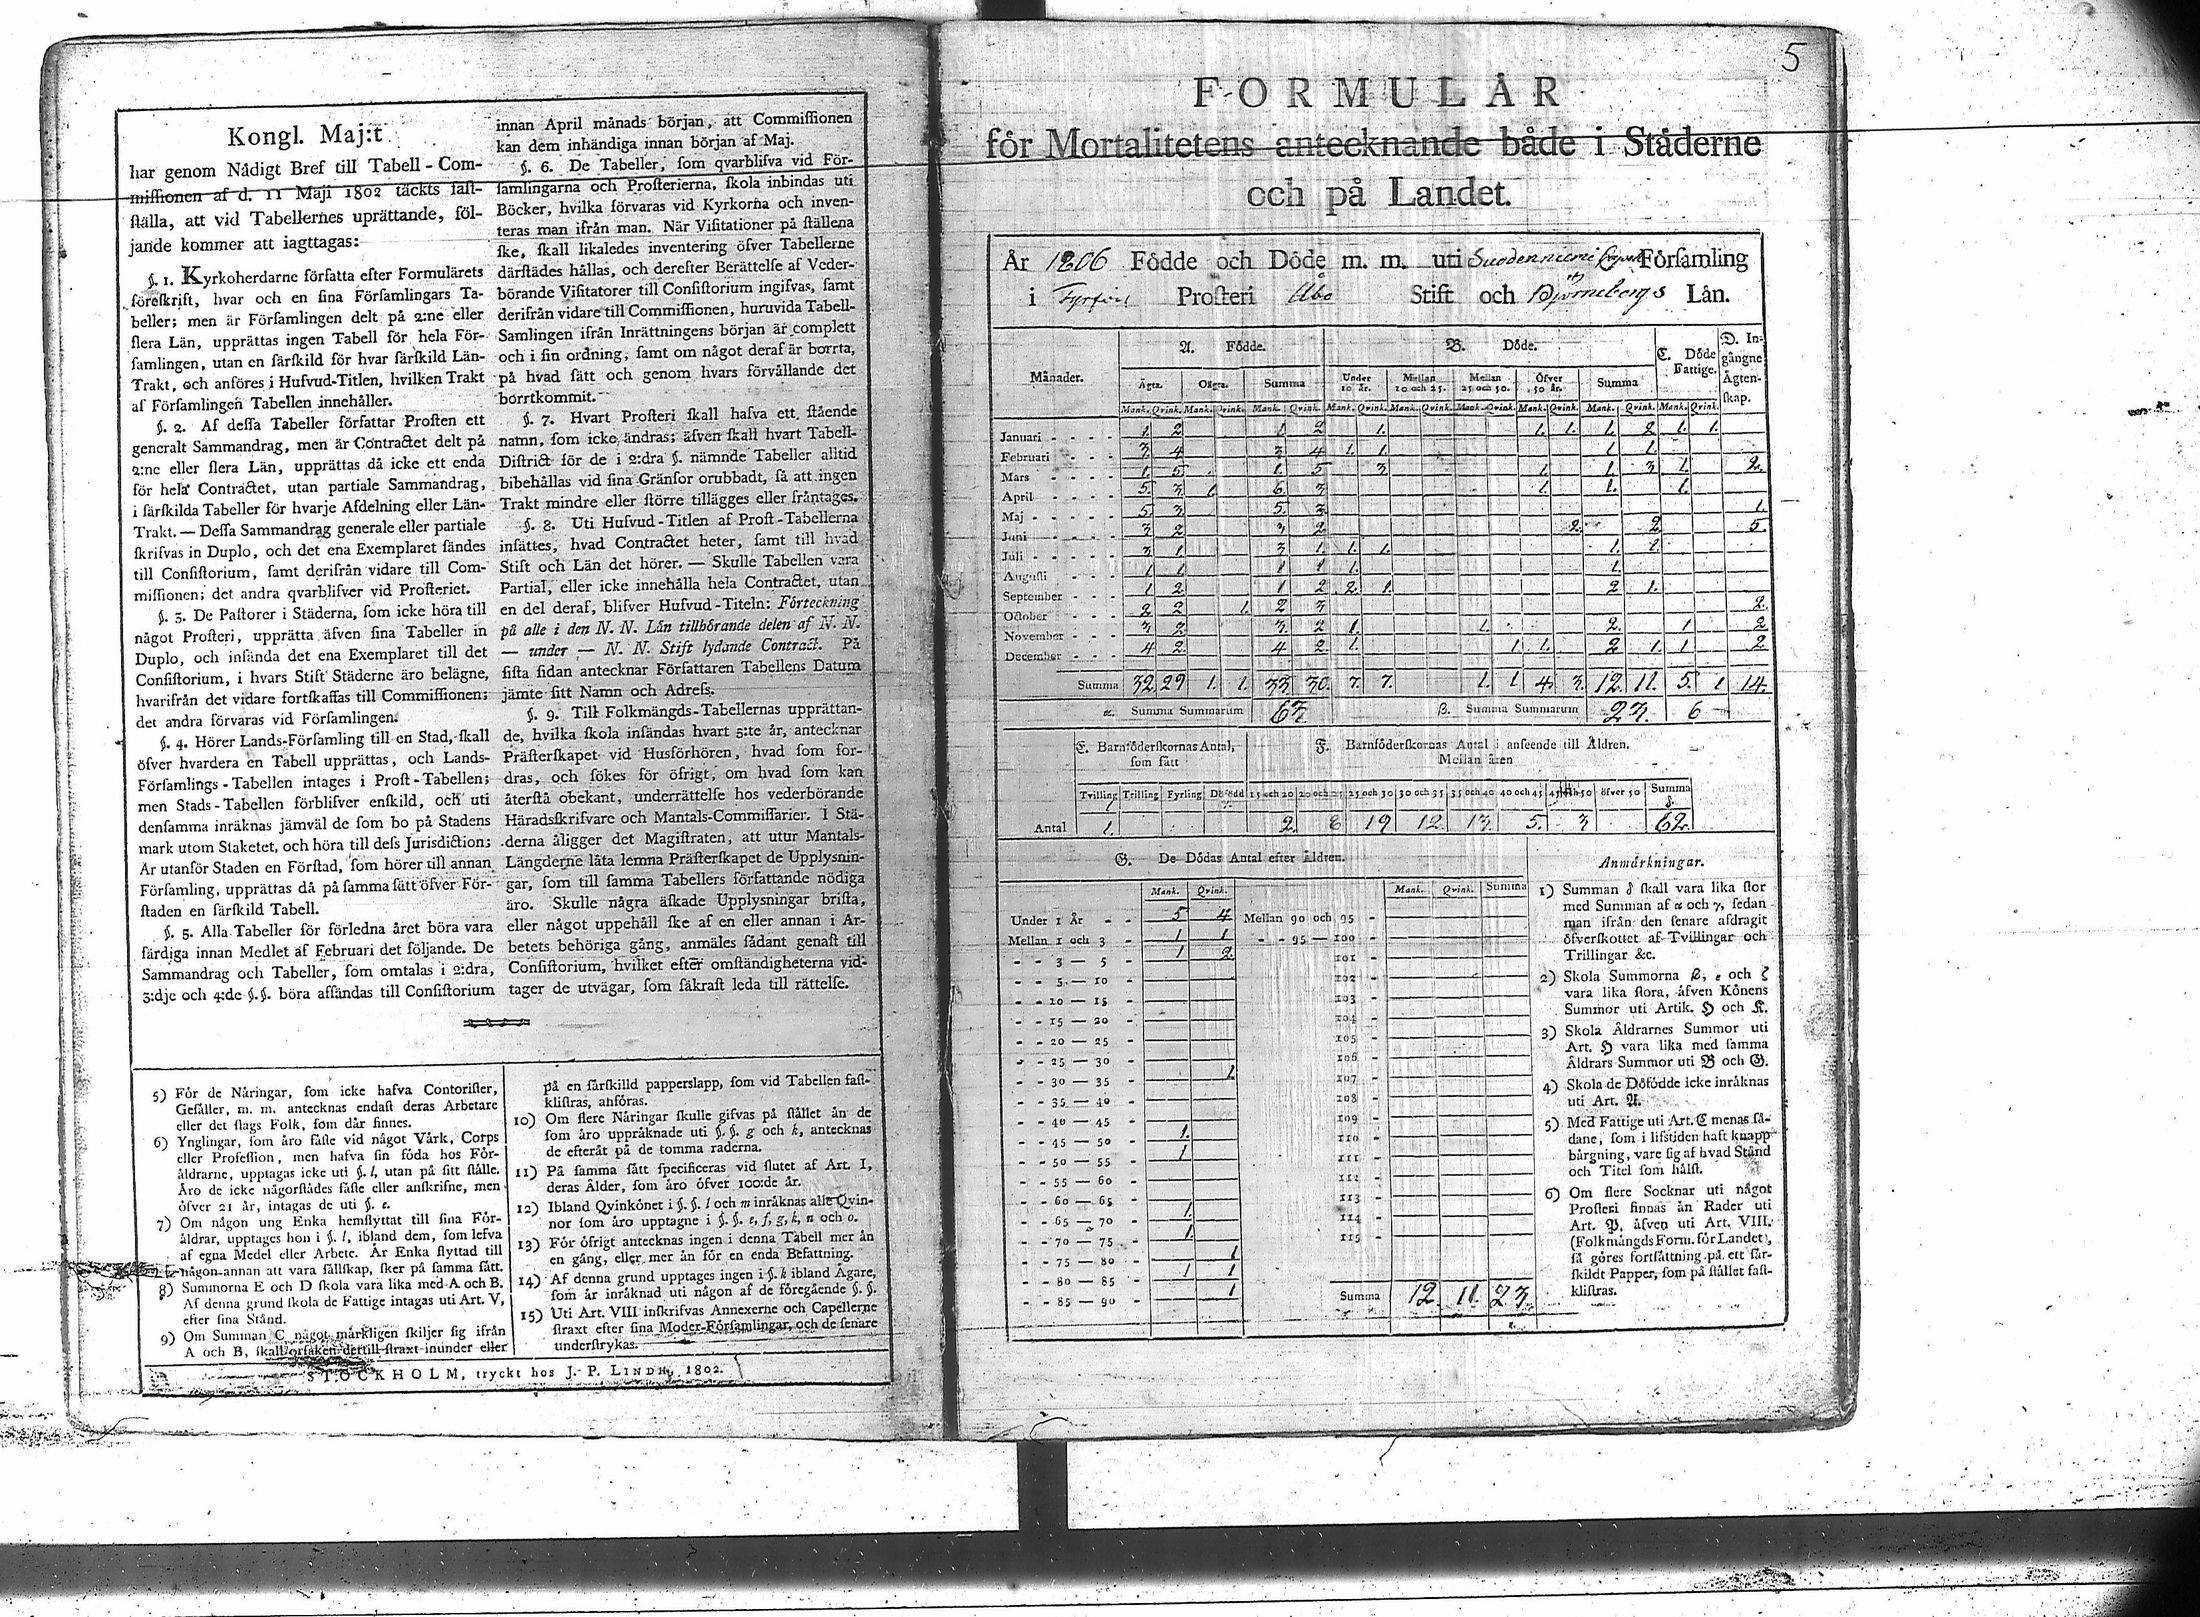 Kongl. Maj:t
har genom Nådigt Bref till Tabell-Com-
missionen af d. 11 Maji 1802 täckts fast-
ställa, att vid Tabellernes uprättande, föl-
jande kommer att iagttagas:
§. 1. Kyrkoherdarne författa efter Formulärets
föreskrift, hvar och en sina Församlingars Ta-
beller; men är Församlingen delt på 2:ne eller
flera Län, upprättas ingen Tabell för hela För-
samlingen, utan en särskild för hvar särskild Län-
Trakt, och anföres i Hufvud-Titlen, hvilken Trakt
af Församlingen Tabellen innehåller.
§. 2. Af dessa Tabeller författar Prosten ett
generalt Sammandrag, men är Contractet delt på
2:ne eller flera Län, upprättas då icke ett enda
för hela Contractet, utan partiale Sammandrag,
i särskilda Tabeller för hvarje Afdelning eller Län-
Trakt. — Dessa Sammandrag generale eller partiale
skrifvas in Duplo, och det ena Exemplaret sändes
till Consistorium, samt derifrån vidare till Com-
missionen; det andra qvarblifver vid Prosteriet.
§. 3. De Pastorer i Städerna, som icke höra till
något Prosteri, upprätta äfven sina Tabeller in
Duplo, och insända det ena Exemplaret till det
Consistorium, i hvars Stift Städerne äro belägne,
hvarifrån det vidare fortskaffas till Commissionen;
det andra förvaras vid Församlingen.
§. 4. Hörer Lands-Församling till en Stad, skall
öfver hvardera en Tabell upprättas, och Lands-
Församlings-Tabellen intages i Prost-Tabellen;
men Stads-Tabellen förblifver enskild, och uti
densamma inräknas jämväl de som bo på Stadens
mark utom Staketet, och höra till dess Jurisdiction;
Är utanför Staden en Förstad, som hörer till annan
Församling, upprättas då på samma sätt öfver För-
staden en särskild Tabell.
§. 5. Alla Tabeller för förledna året böra vara
färdiga innan Medlet af Februari det följande. De
Sammandrag och Tabeller, som omtalas i 2:dra,
3:dje och 4:de §.§. böra afsändas till Consistorium
innan April månads början, att Commissionen
kan dem inhändiga innan början af Maj.
§. 6. De Tabeller, som qvarblifva vid För-
samlingarna och Prosterierna, skola inbindas uti
Böcker, hvilka förvaras vid Kyrkorna och inven-
teras man ifrån man. När Visitationer på ställena
ske, skall likaledes inventering öfver Tabellerne
därstädes hållas, och derefter Berättelse af Veder-
börande Visitatorer till Consistorium ingifvas, samt
derifrån vidare till Commissionen, huruvida Tabell-
Samlingen ifrån Inrättningens början är complett
och i sin ordning, samt om något deraf är borrta,
på hvad sätt och genom hvars förvållande det
borrtkommit.
§. 7. Hvart Prosteri skall hafva ett stående
namn, som icke ändras; äfven skall hvart Tabell-
District för de i 2:dra §. nämnde Tabeller alltid
bibehållas vid sina Gränsor orubbadt, så att ingen
Trakt mindre eller större tillägges eller fråntages.
§. 8. Uti Hufvud-Titlen af Prost-Tabellerna
insättes, hvad Contractet heter, samt till hvad
Stift och Län det hörer. — Skulle Tabellen vara
Partial, eller icke innehålla hela Contractet, utan
en del deraf, blifver Hufvud-Titeln: Förteckning
på alle i den N. N. Län tillhörande delen af N. N.
— under — N. N. Stift lydande Contract. På
sista sidan antecknar Författaren Tabellens Datum
jämte sitt Namn och Adress.
§. 9. Till Folkmängds-Tabellernas upprättan-
de, hvilka skola insändas hvart 5:te år, antecknar
Prästerskapet vid Husförhören, hvad som for-
dras, och sökes för öfrigt, om hvad som kan
återstå obekant, underrättelse hos vederbörande
Häradsskrifvare och Mantals-Commissarier. I Stä-
derna åligger det Magistraten, att utur Mantals-
Längderne låta lemna Prästerskapet de Upplysnin-
gar, som till samma Tabellers författande nödiga
äro. Skulle några äskade Upplysningar brista,
eller något uppehåll ske af en eller annan i Ar-
betets behöriga gång, anmäles sådant genast till
Consistorium, hvilket efter omständigheterna vid-
tager de utvägar, som säkrast leda till rättelse.
5) För de Näringar, som icke hafva Contorister,
Gesäller, m. m. antecknas endast deras Arbetare
eller det slags Folk, som där finnes.
6) Ynglingar, som äro fäste vid något Värk, Corps
eller Profession, men hafva sin föda hos För-
äldrarne, upptagas icke uti §. l, utan på sitt ställe.
Äro de icke någorstädes fäste eller anskrifne, men
öfver 21 år, intagas de uti §. e.
7) Om någon ung Enka hemflyttat till sina För-
äldrar, upptages hon i §. l, ibland dem, som lefva
af egna Medel eller Arbete. Är Enka flyttad till
någon annan att vara sällskap, sker på samma sätt.
8) Summorna E och D skola vara lika med A och B.
Af denna grund skola de Fattige intagas uti Art. V,
efter sina Stånd.
9) Om Summan C något märkligen skiljer sig ifrån
A och B, skall orsaken dertill straxt inunder eller
på en särskilld papperslapp, som vid Tabellen fast-
klistras, anföras.
10) Om flere Näringar skulle gifvas på stället än de
som äro uppräknade uti §. §. g och k, antecknas
de efteråt på de tomma raderna.
11) På samma sätt specificeras vid slutet af Art. I,
deras Ålder, som äro öfver 100:de år.
12) Ibland Qvinkönet i §. §. l och m inräknas alle Qvin-
nor som äro upptagne i §. §. e, f, g, k, n och o.
13) För öfrigt antecknas ingen i denna Tabell mer än
en gång, eller mer än för en enda Befattning.
14) Af denna grund upptages ingen i §. k ibland Ägare,
som är inräknad uti någon af de föregående §. §.
15) Uti Art. VIII inskrifvas Annexerne och Capellerne
straxt efter sina Moder-Församlingar, och de senare
understrykas.
STOCKHOLM, tryckt hos J. P. LINDH, 1802.
5
FORMULÄR
för Mortalitetens anteeknande både i Städerne
och på Landet.
År 1806 Födde och Döde m. m. uti Suodenniemi Församling
i Prosteri Åbo Stift och Björneborgs Län.
Månader. A. Födde. B. Döde. C. Döde Fattige. D. Ingångne Ägtenskap.
Ägta. Oägta. Summa Under 10 år. Mellan 10 och 25. Mellan 25 och 50. Öfver 50 år. Summa
Mank. Qvink. Mank. Qvink. Mank. Qvink. Mank. Qvink. Mank. Qvink. Mank. Qvink. Mank. Qvink. Mank. Qvink. Mank. Qvink.
Januari - - - - 1 2 1 2 1. 1. 1. 1. 2 1. 1.
Februari - - - 3 4 3 4 1. 1. 1 1.
Mars - - - - 1 5 1. 5 3 1. 1. 3 1. 2.
April - - - - 5. 3 1. 6. 3 1. 1. 1.
Maj - - - - - 5 3 5. 3 1.
Juni - - - - 3 2 3 2 2. 2 5.
Juli - - - - 3 1 3 1. 1. 1. 1. 1.
Augusti - - - 1 1 1 1 1. 1.
September - - - 1 2 1 2 2. 1. 2 1.
October - - - 2 2 1. 2 3 2.
November - - - 3 2 3. 2 1. 1. 2. 1 2
December - - - 4 2 4 2 1. 1 1. 2 1. 1 2
Summa 32 29 1. 1. 33 30. 7. 7. 1. 1 4. 3. 12. 11. 5. 1 14.
α. Summa Summarum 63. β. Summa Summarum 23. 6
E. Barnföderskornas Antal, som fått
F. Barnföderskornas Antal i anseende till Åldren.
Mellan åren
Tvilling Trilling Fyrling Dödfödd 15 och 20 20 och 25 25 och 30 30 och 35 35 och 40 40 och 45 45 och 50 öfver 50 Summa δ.
Antal 1. 2. 8 19 12. 13. 5. 3 62.
G. De Dödas Antal efter Åldren.
Mank. Qvink. Mank. Qvink. Summa
Under 1 År - - 5 4 Mellan 90 och 95 -
Mellan 1 och 3 - 1 1 - - 95 — 100 -
- - 3 — 5 - 1 2. 101 -
- - 5 — 10 - 102 -
- - 10 — 15 - 103 -
- - 15 — 20 - 104 -
- - 20 — 25 - 105 -
- - 25 — 30 - 106 -
- - 30 — 35 - 1. 107 -
- - 35 — 40 - 108 -
- - 40 — 45 - 109 -
- - 45 — 50 - 1. 110 -
- - 50 — 55 - 1 111 -
- - 55 — 60 - 112 -
- - 60 — 65 113 -
- - 65 — 70 - 1. 114 -
- - 70 — 75 - 1. 115 -
- - 75 — 80 - 1
- - 80 — 85 - 1 1
- - 85 — 90 - 1 Summa 12. 11. 23.
Anmärkningar.
1) Summan δ skall vara lika stor
med Summan af α och γ, sedan
man ifrån den senare afdragit
öfverskottet af Tvillingar och
Trillingar &c.
2) Skola Summorna β, ε och ζ
vara lika stora, äfven Könens
Summor uti Artik. H och K.
3) Skola Åldrarnes Summor uti
Art. H vara lika med samma
Åldrars Summor uti B och G.
4) Skola de Dödfödde icke inräknas
uti Art. A.
5) Med Fattige uti Art. C menas så-
dane, som i lifstiden haft knapp
bärgning, vare sig af hvad Stånd
och Titel som hälst.
6) Om flere Socknar uti något
Prosteri finnas än Rader uti
Art. P, äfven uti Art. VIII.
(Folkmängds Form. för Landet),
så göres fortsättning på ett sär-
skildt Papper, som på stället fast-
klistras.